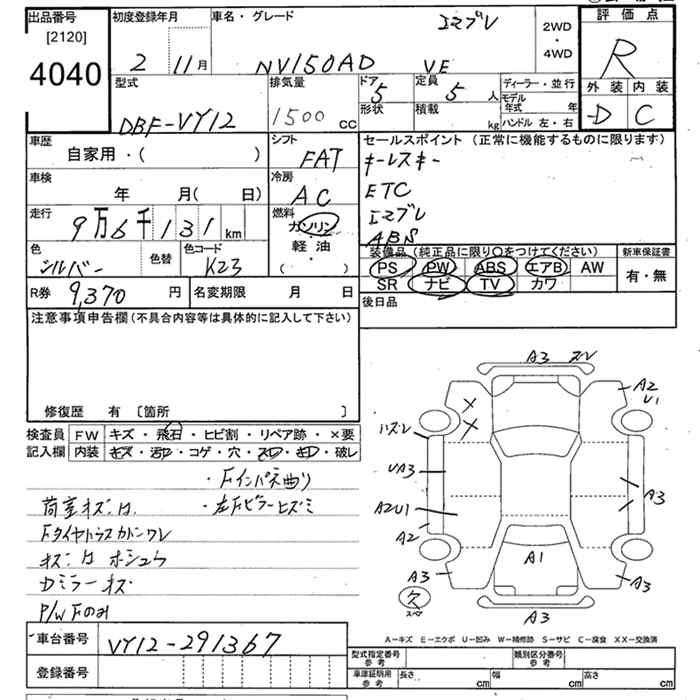 出品番号 初度登録年月 車名・グレード エマブレ 2WD・4WD 評価点
[2120]
4040 2 11月 NV150AD VE R
型式 排気量 ドア 5 定員 5人 ディーラー・並行 外装 内装
DBF-VY12 1500 cc 形状 積載 kg モデル年式 年 -D C
ハンドル 左・右
車歴 シフト セールスポイント (正常に機能するものに限ります)
自家用・( ) FAT キーレスキー
車検 冷房 ETC
年 月( 日) AC エマブレ
走行 燃料 ABS
9万6千131km ガソリン
軽油
・
( )
色 色替 色コード 装備品(純正品に限り○をつけてください) 新車保証書
シルバー K23 PS PW ABS エアB AW 有・無
SR ナビ TV カワ
R券 9,370円 名変期限 月 日 後日品
注意事項申告欄(不具合内容等は具体的に記入して下さい)
修復歴 有 〔箇所 〕
検査員 FW キズ・飛石・ヒビ割・リペア跡・×要
記入欄 内装 キズ・汚れ・コゲ・穴・スレ・キレ・破レ
・Fインパネ曲り
荷室キズハ ・左Fピラーヒズミ
Fタイヤハウスカバーワレ
キズ ホシュウ
Dミラーキズ
P/W Fのみ
A3 スレ
A2
U1
ハズレ
UA3
A3
A2U1
A2
A1
A3
A3
欠
スペア
A3
A-キズ E-エクボ U-凹み W-補修跡 S-サビ C-腐食 XX-交換済
車台番号 VY12-291367
登録番号
型式指定番号 参考 類別区分番号 参考
車庫証明用 参考 長さ cm 幅 cm 高さ cm